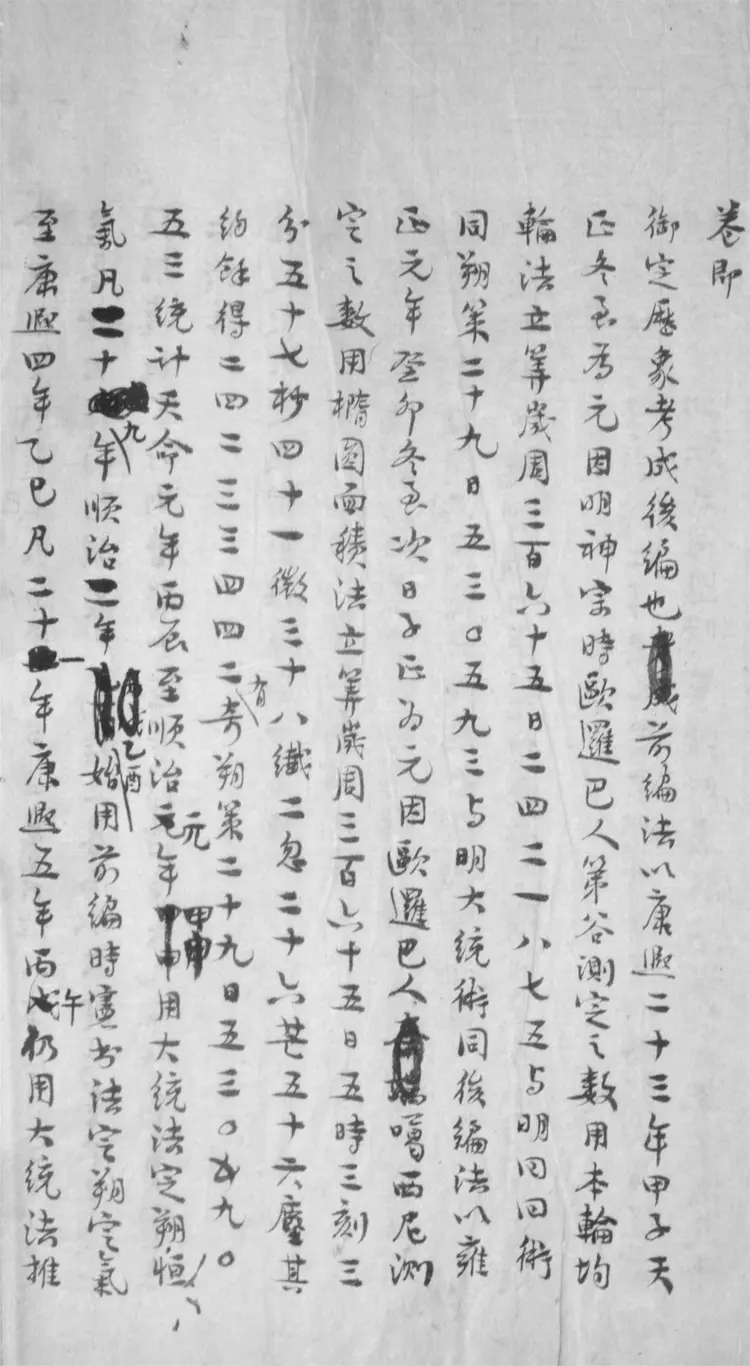 卷即
御定歷象考成後編也前編法以康熙二十三年甲子天
正冬至為元因明神宗時歐邏巴人第谷測定之數用本輪均
輪法立筭歲周三百六十五日二四二一八七五与明回回術
同朔策二十九日五三〇五九三与明大統術同後編法以雍
正元年癸卯冬至次日子正為元因歐邏巴人噶西尼測
定之數用橢圓面積法立筭歲周三百六十五日五時三刻三
分五十七秒四十一微三十八纖二忽二十六芒五十六塵其
約餘得二四二三三四四二有奇朔策二十九日五三〇五九〇
五三統計天命元年丙辰至順治元年甲申用大統法定朔恒
氣凡二十九年順治二年乙酉始用前編時憲书法定朔定氣
至康熙四年乙巳凡二十一年康熙五年丙午仍用大統法推